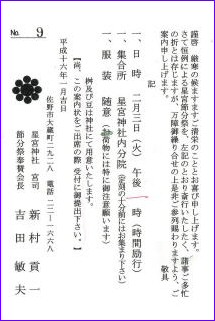 No. 9
謹啓 厳寒の候ますます御清栄のこととお喜び申し上げます。
さて恒例による星宮節分祭を、左記のとおり斎行いたしたく、諸事ご多忙
の折とは存じますが、万障御繰り合せの上是非ご参列賜わりますよう、ご
案内申し上げます。
敬具
記
一、日時 二月三日(火)午後 時(時間励行)
一、集合所 星宮神社内分院(定刻の十分前にはお集まり下さい)
一、服装 随意(お荷物には特に御注意願います)
桝及び豆は神社にて用意いたします。
【尚、この案内状をご出席の際 受付に御提出下さい。】
平成十六年一月吉日
佐野市大蔵町二九二八 電話 二二‐一六六八
星宮神社 宮司 新村貢一
節分祭奉賛会長 吉田敏夫